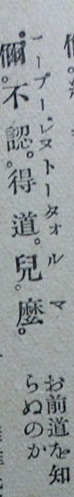 ニープーレヌトータオルマ
儞。不認。得道。兒麼。
お前道を知
らぬのか